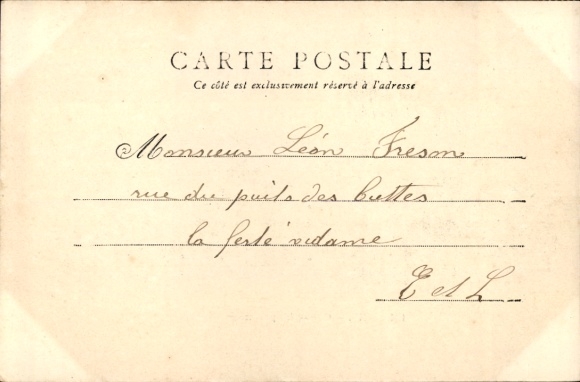 CARTE POSTALE
Ce côté est exclusivement réservé à l'adresse
Monsieur Léon Fresm
rue du puits des buttes
la ferté vidame
E et L